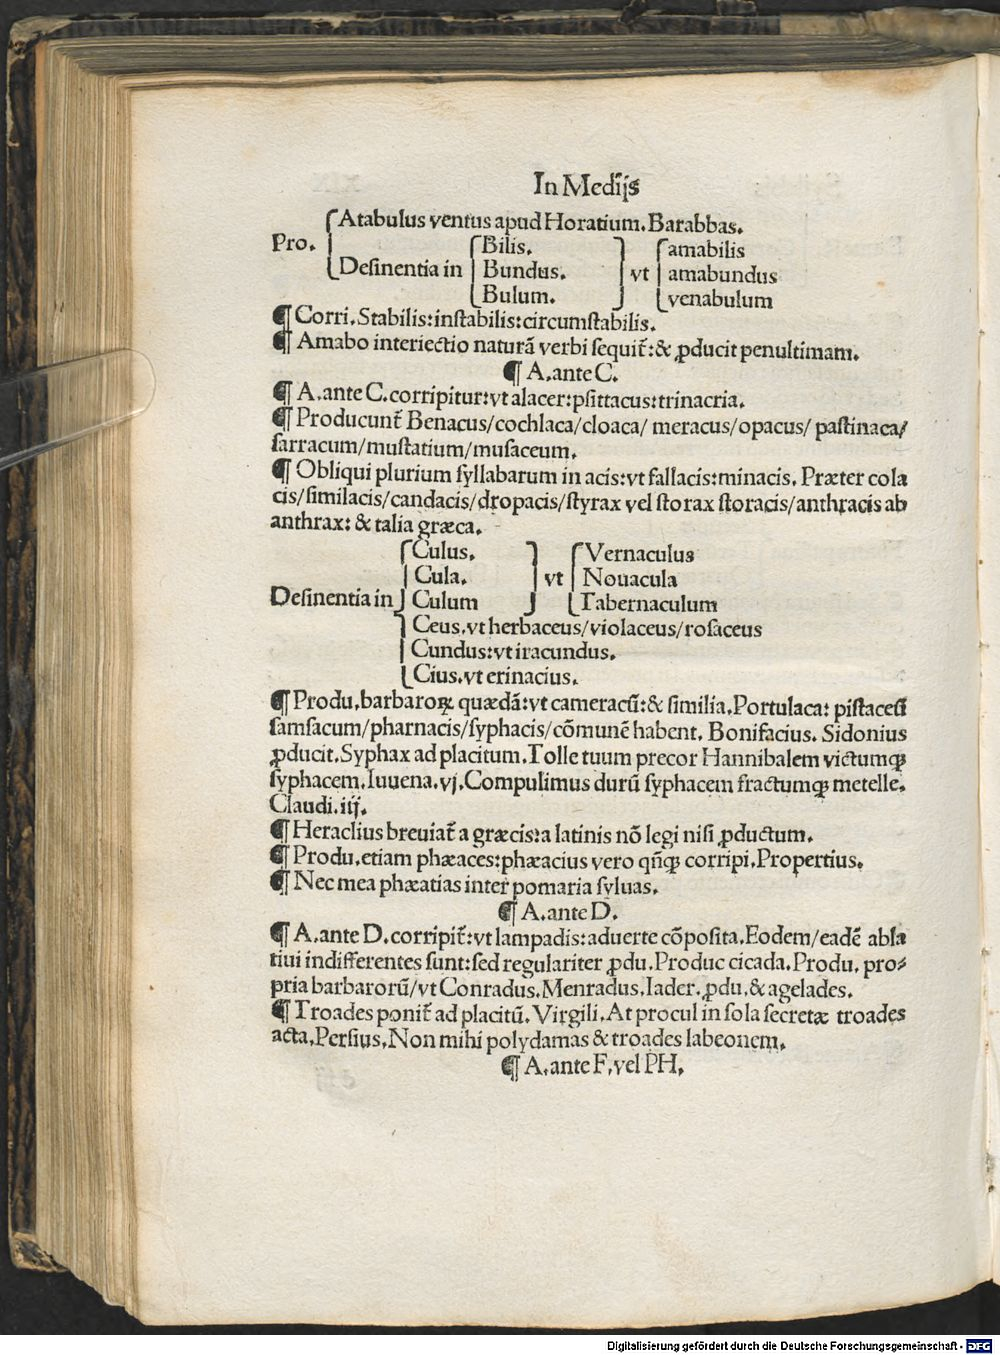 In Medijs
Atabulus ventus apud Horatium. Barabbas.
Pro. Desinentia in Bilis. Bundus. Bulum. vt amabilis amabundus venabulum
¶ Corri. Stabilis: instabilis: circumstabilis.
¶ Amabo interiectio naturã verbi sequit᷑: & ꝓducit penultimam.
¶ A. ante C.
¶ A. ante C. corripitur: vt alacer: psittacus: trinacria.
¶ Producunt᷑ Benacus/ cochlaca/ cloaca/ meracus/ opacus/ pastinaca/
sarracum/ mustatium/ musaceum.
¶ Obliqui plurium syllabarum in acis: vt fallacis: minacis. Præter cola
cis/ similacis/ candacis/ dropacis/ styrax vel storax storacis/ anthracis ab
anthrax: & talia græca.
Culus. vt Vernaculus
Cula. Nouacula
Desinentia in Culum Tabernaculum
Ceus. vt herbaceus/ violaceus/ rosaceus
Cundus: vt iracundus.
Cius. vt erinacius.
¶ Produ. barbaroꝝ quædã: vt cameracũ: & similia. Portulaca: pistaceũ
samsacum/ pharnacis/ syphacis/ cõmunẽ habent. Bonifacius. Sidonius
ꝓducit. Syphax ad placitum. Tolle tuum precor Hannibalem victumqꝫ
syphacem. Iuuena. vj. Compulimus durũ syphacem fractumqꝫ metelle.
Claudi. iij.
¶ Heraclius breuiat᷑ a græcis: a latinis nõ legi nisi ꝓductum.
¶ Produ. etiam phæaces: phæacius vero qñqꝫ corripi. Propertius.
¶ Nec mea phæatias inter pomaria syluas.
¶ A. ante D.
¶ A. ante D. corripit᷑: vt lampadis: aduerte cõposita. Eodem/ eadẽ abla
tiui indifferentes sunt: sed regulariter ꝓdu. Produc cicada. Produ. pro⸗
pria barbarorũ/ vt Conradus. Menradus. Iader. ꝓdu. & agelades.
¶ Troades ponit᷑ ad placitũ. Virgili. At procul in sola secretæ troades
acta. Persius. Non mihi polydamas & troades labeonem.
¶ A. ante F. vel PH.
Digitalisierung gefördert durch die Deutsche Forschungsgemeinschaft - DFG